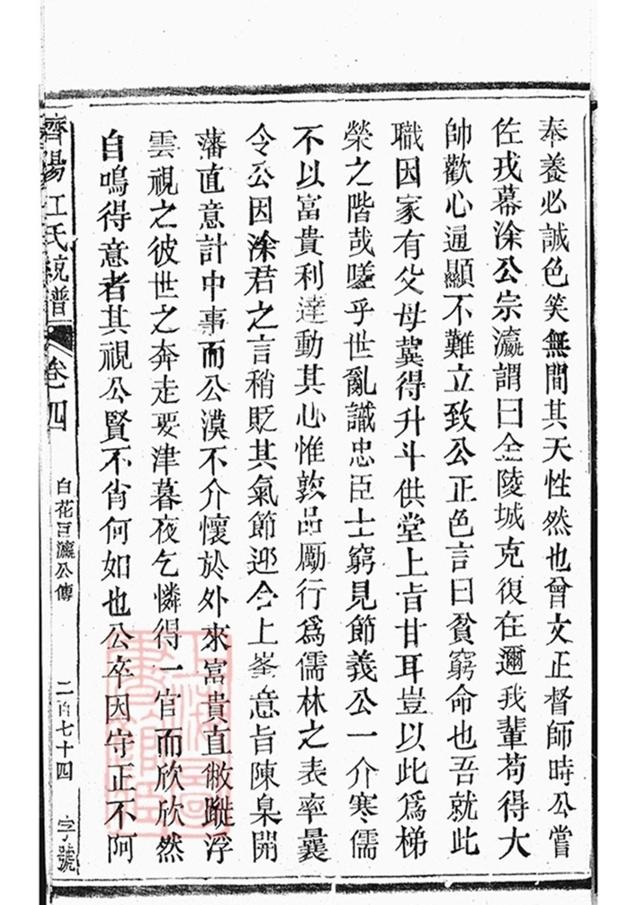 奉養必誠色笑無間其天性然也曾文正督師時公嘗
佐戎幕涂公宗瀛謂曰金陵城克復在邇我輩苟得大
帥歡心通顯不難立致公正色言曰貧窮命也吾就此
職因家有父母冀得升斗供堂上旨甘耳豈以此為梯
榮之階哉嗟乎世亂識忠臣士窮見節義公一介寒儒
不以富貴利達動其心惟敦品勵行為儒林之表率曩
令公因涂君之言稍貶其氣節迎合上峯意旨陳臬開
藩直意計中事而公漠不介懷於外來富貴直敝蹝浮
雲視之彼世之奔走要津暮夜乞憐得一官而欣欣然
自鳴得意者其視公賢不肖何如也公卒因守正不阿
濟陽江氏統譜 卷四 白花 瀛公傳 二百七十四 字號